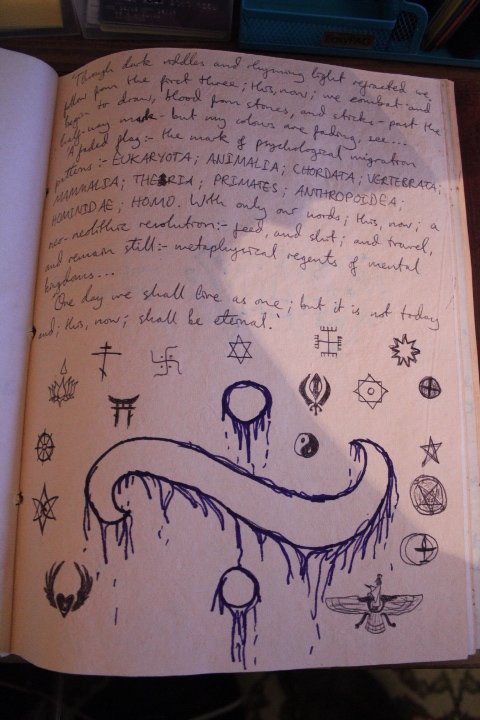 "Through dark riddles and rhyming light refracted we,
follow from the first three; this, now; we combat and
begin to draw, blood from stones, and sticks - past the
half-way mark - but my colours are fading, see...
"A faded flag:- the mark of psychological migration
patterns:- EUKARYOTA; ANIMALIA; CHORDATA; VERTEBRATA;
MAMMALIA; THERIA; PRIMATES; ANTHROPOIDEA;
HOMINIDAE; HOMO. With only our words; this, now; a
neo-neolithic resolution:- feed, and shit; and travel,
and remain still:- metaphysical regents of mental
kingdoms...
"One day we shall live as one; but it is not today
and; this, now; shall be eternal."